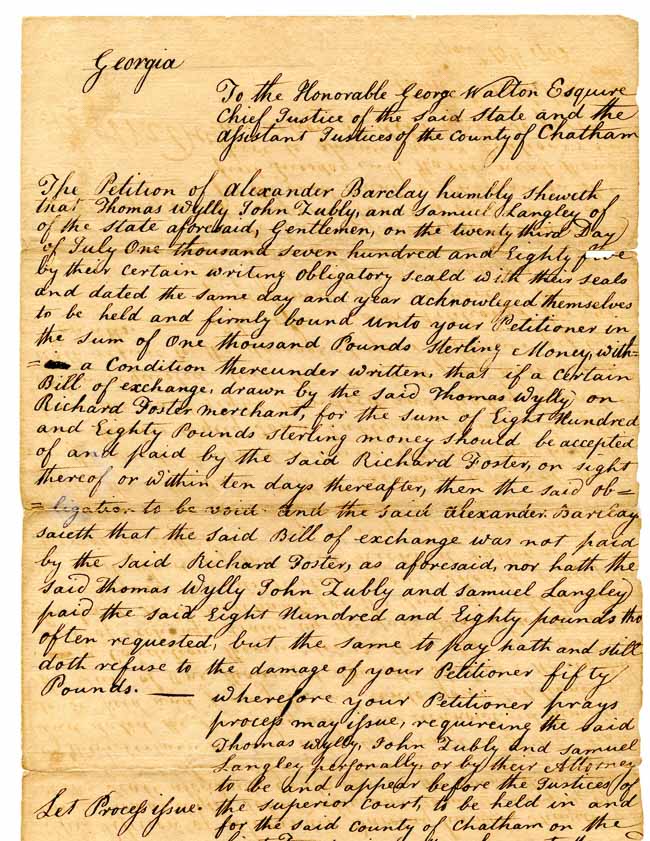 Georgia
To the Honorable George Walton Esquire
Chief Justice of the said State and the
Assistant Justices of the County of Chatham
The Petition of Alexander Barclay humbly sheweth
that Thomas Wylly John Zubly, and Samuel Langley of
of the State aforesaid, Gentlemen, on the twenty third Day
of July One thousand seven hundred and Eighty five
by their certain writing obligatory seald with their seals
and dated the same day and year acknowleged themselves
to be held and firmly bound unto your Petitioner in
the sum of One thousand Pounds sterling Money, with=
= a Condition thereunder written, that if a certain
Bill of exchange, drawn by the said Thomas Wylly on
Richard Foster merchant, for the sum of Eight Hundred
and Eighty Pounds sterling money should be accepted
of and paid by the said Richard Foster, on sight
thereof or within ten days thereafter, then the said ob=
=ligation to be void and the said Alexander Barclay
saieth that the said Bill of exchange was not paid
by the said Richard Foster, as aforesaid, nor hath the
said Thomas Wylly John Zubly and Samuel Langley
paid the said Eight Hundred and Eighty pounds tho
often requested, but the same to pay hath and still
doth refuse to the damage of your Petitioner fifty
Pounds. —
wherefore your Petitioner prays
process may issue, requireing the said
Thomas Wylly, John Zubly and Samuel
Langley personally, or by their Attorney
to be and appear before the Justices of
Let Process issue. the superior Court, to be held in and
for the said County of Chatham on the